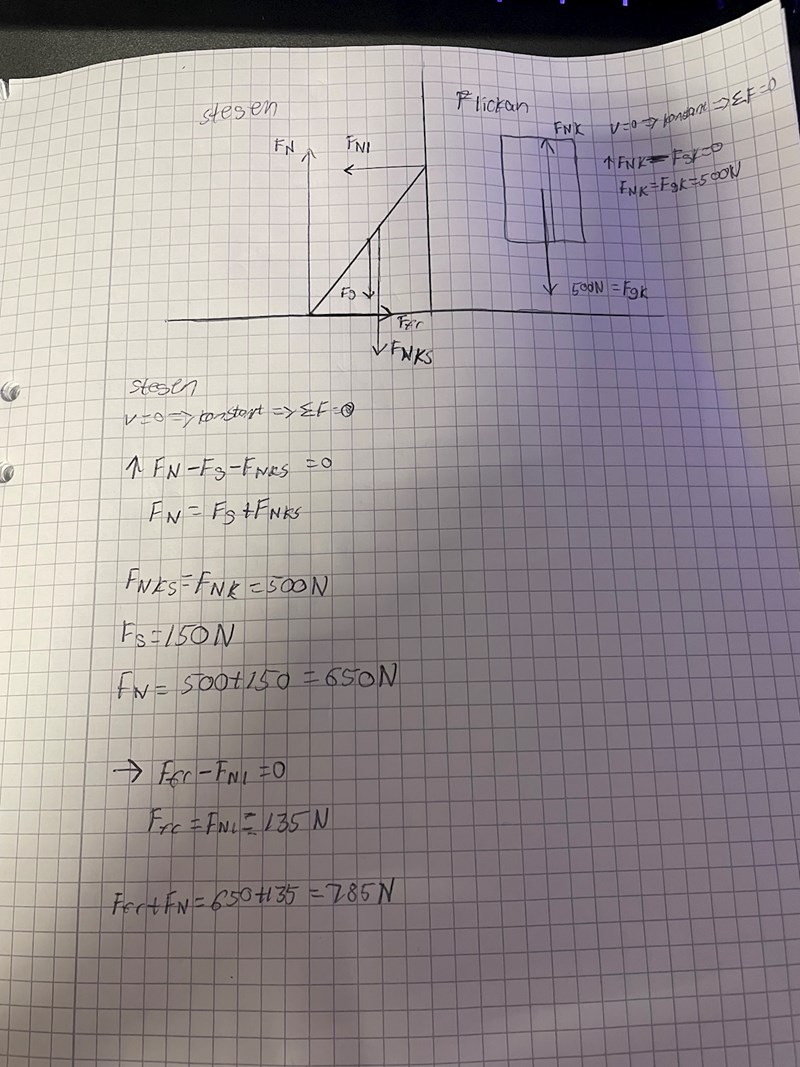 stegen
Flickan
FN
FN1
FNK
v=0 => konstant => ΣF=0
↑FNK-Fgk=0
FNK=Fgk=500N
Fg
500N = Fgk
Ffr
FNKS
stegen
v=0 => konstant => ΣF=0
↑ FN-Fg-FNKS =0
FN = Fg+FNKS
FNKS=FNK=500N
Fg=150N
FN= 500+150 = 650N
→ Ffr-FN1 =0
Ffr =FN1= 135 N
Ffr+FN=650+135 =785N